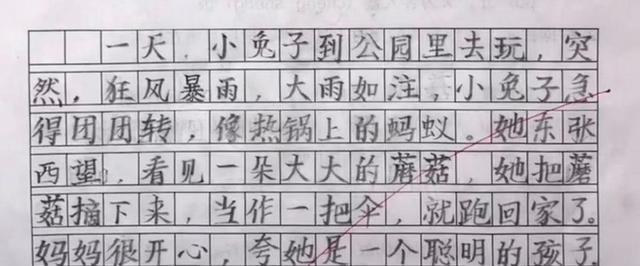 一天，小兔子到公园里去玩，突
然，狂风暴雨，大雨如注，小兔子急
得团团转，像热锅上的蚂蚁。她东张
西望，看见一朵大大的蘑菇，她把蘑
菇摘下来，当作一把伞，就跑回家了。
妈妈很开心，夸她是一个聪明的孩子.